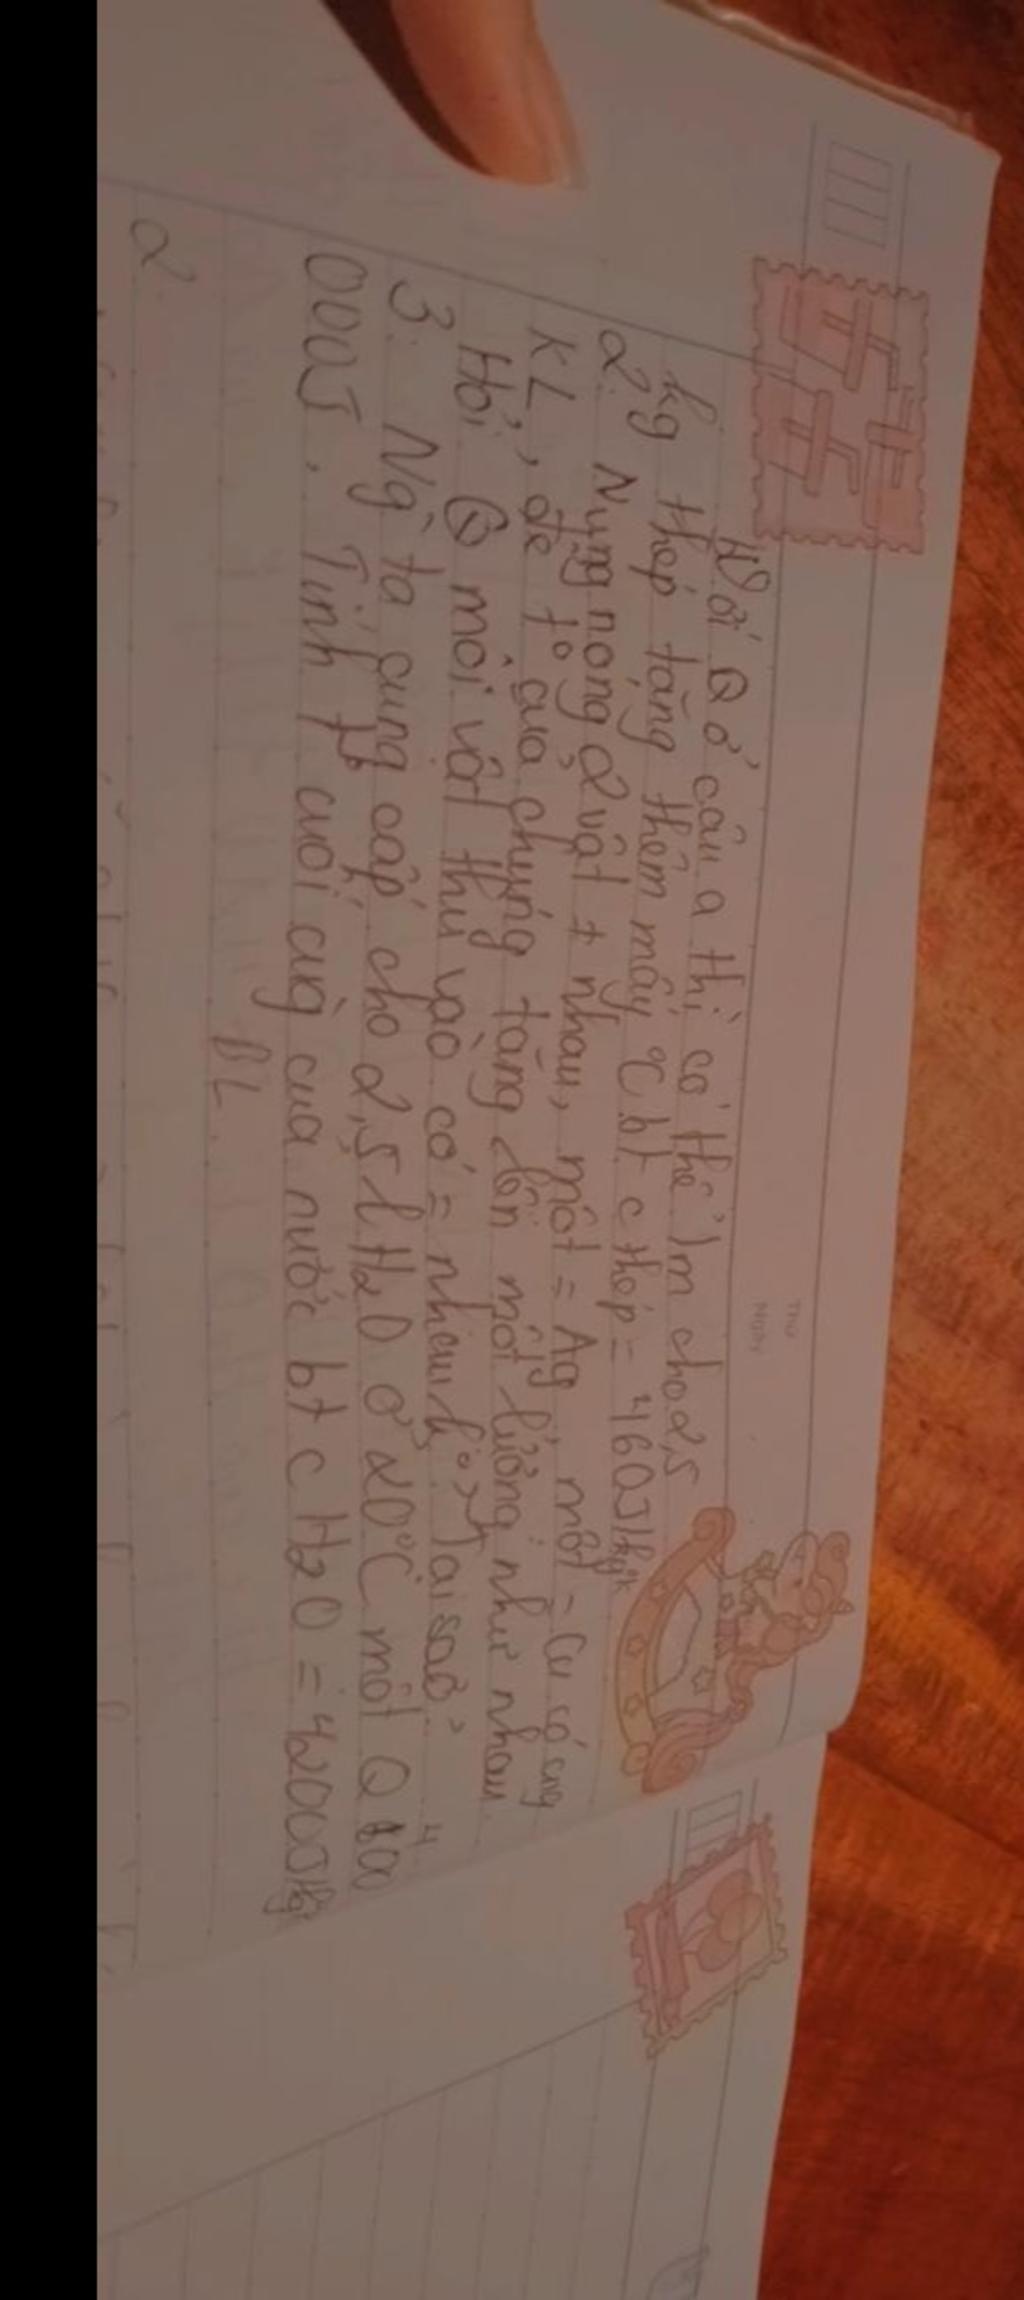 Với Q ở câu a thì có thể lm cho 2,5
kg thép tăng thêm mấy °C bt c thép = 460J/kgk
2. Nung nóng 2 vật + nhau, một = Ag một = Cu có cùng
KL, để t° của chúng tăng lên một lượng như nhau.
Hỏi Q mỗi vật thu vào có = nhau k°? Tại sao?
3. Ng` ta cung cấp cho 2,5l H2O ở 20°C một Q 400
000J. Tính t° cuối cùng của nước bt c H2O = 4200J/kgk
BL
2
THỨ
NGÀY